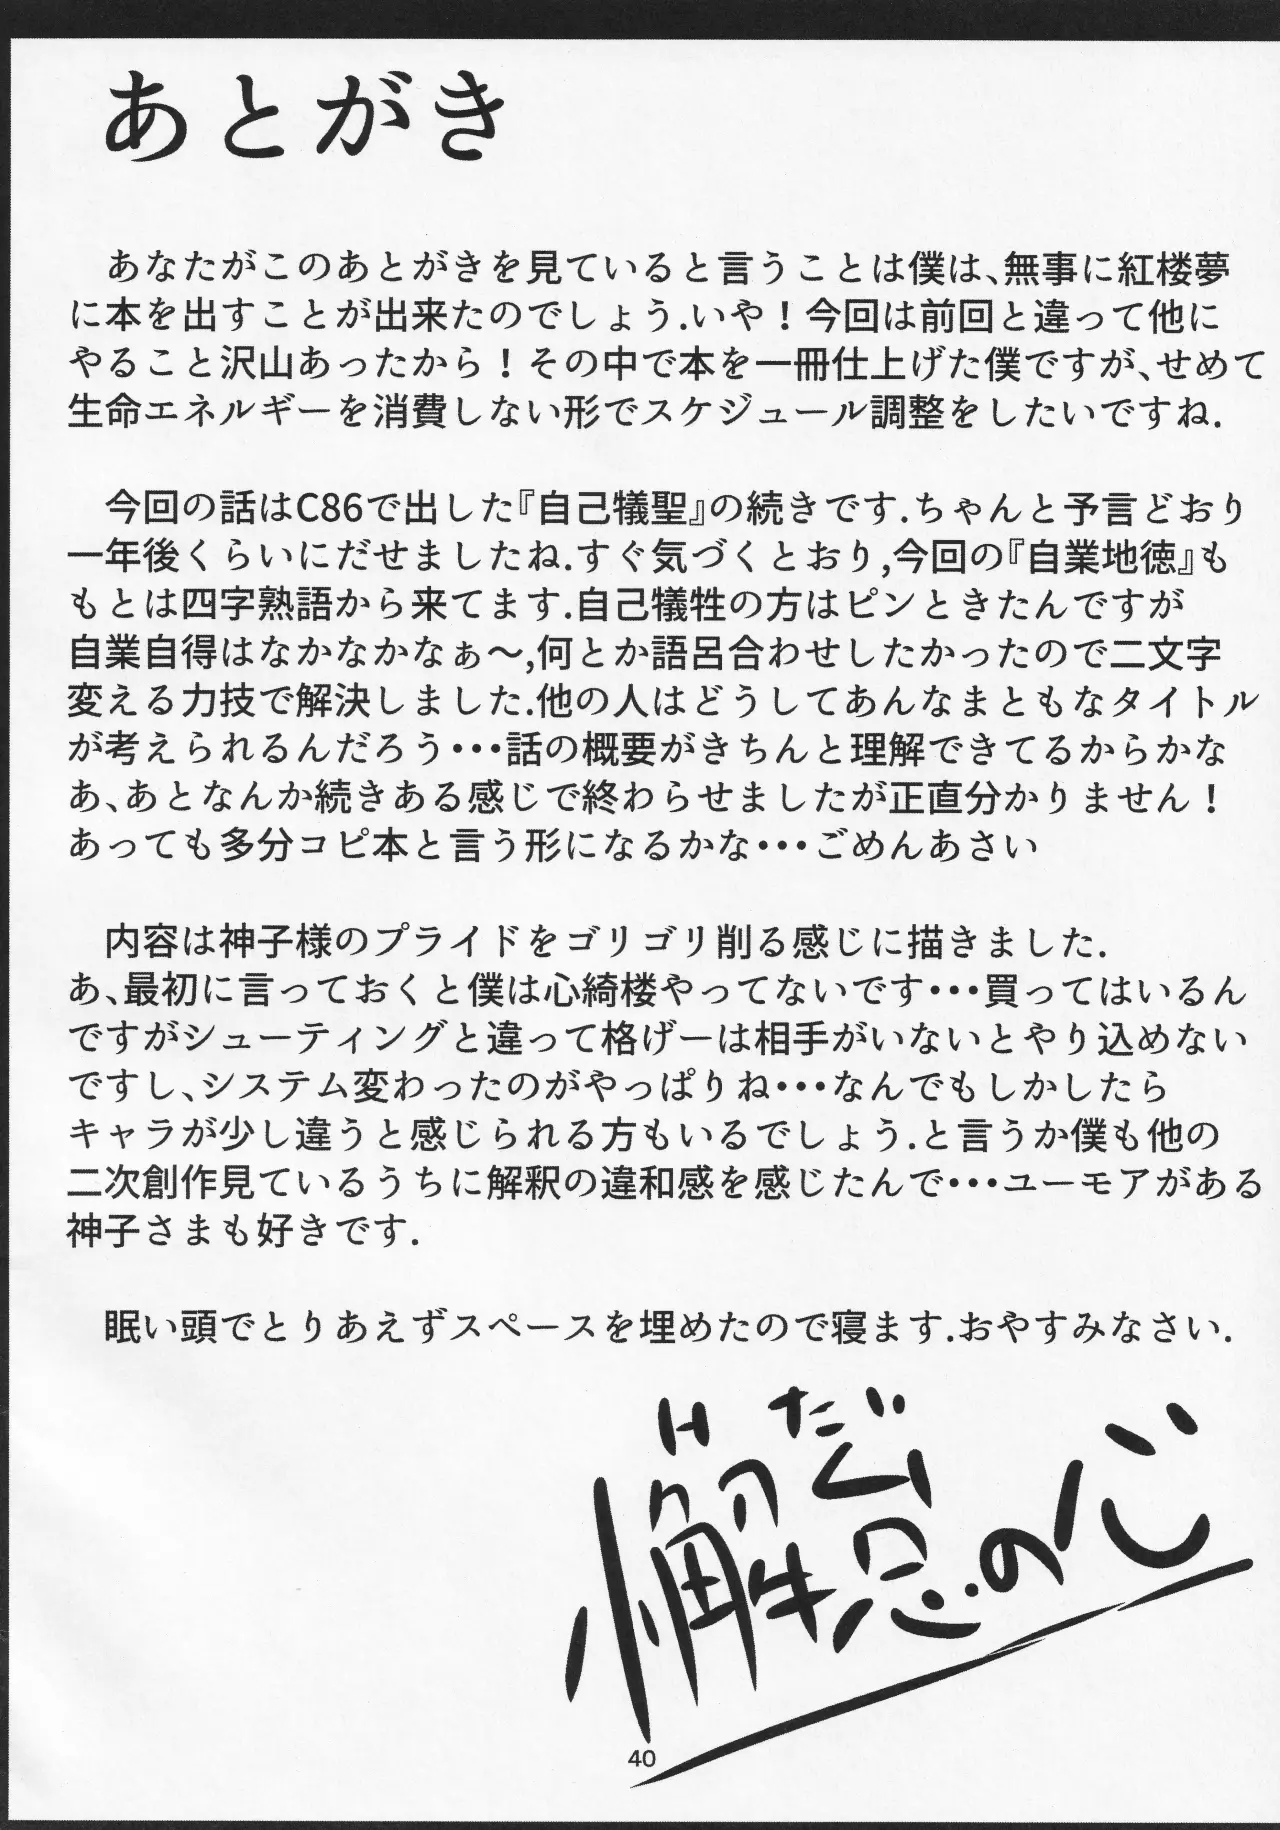 あとがき
あなたがこのあとがきを見ていると言うことは僕は、無事に紅楼夢
に本を出すことが出来たのでしょう.いや！今回は前回と違って他に
やること沢山あったから！その中で本を一冊仕上げた僕ですが、せめて
生命エネルギーを消費しない形でスケジュール調整をしたいですね.
今回の話はC86で出した『自己犠聖』の続きです.ちゃんと予言どおり
一年後くらいにだせましたね.すぐ気づくとおり,今回の『自業地徳』も
もとは四字熟語から来てます.自己犠牲の方はピンときたんですが
自業自得はなかなかなぁ～,何とか語呂合わせしたかったので二文字
変える力技で解決しました.他の人はどうしてあんなまともなタイトル
が考えられるんだろう･･･話の概要がきちんと理解できてるからかな
あ、あとなんか続きある感じで終わらせましたが正直分かりません！
あっても多分コピ本と言う形になるかな･･･ごめんあさい
内容は神子様のプライドをゴリゴリ削る感じに描きました.
あ、最初に言っておくと僕は心綺楼やってないです･･･買ってはいるん
ですがシューティングと違って格げーは相手がいないとやり込めない
ですし、システム変わったのがやっぱりね･･･なんでもしかしたら
キャラが少し違うと感じられる方もいるでしょう.と言うか僕も他の
二次創作見ているうちに解釈の違和感を感じたんで･･･ユーモアがある
神子さまも好きです.
眠い頭でとりあえずスペースを埋めたので寝ます.おやすみなさい.
けたい
懈怠の心
40